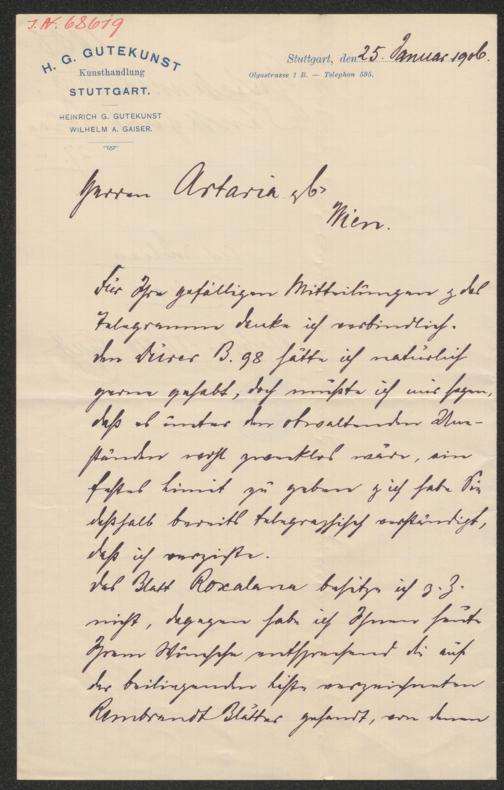 I.N. 68619
H. G. GUTEKUNST
Kunsthandlung
STUTTGART.
HEINRICH G. GUTEKUNST
WILHELM A. GAISER.
Stuttgart, den 25. Januar 1906.
Olgastrasse 1 B. — Telephon 595.
Herren Artaria & Co
Wien.
Für Ihre gefälligen Mitteilungen & das
Telegramm danke ich verbindlich.
Den Dürer B. 98 hätte ich natürlich
gerne gehabt, doch mußte ich mir sagen,
daß es unter den obwaltenden Um-
ständen wohl zwecklos wäre, ein
festes Limit zu geben & ich habe Sie
deßhalb bereits telegraphisch verständigt,
daß ich verzichte.
Das Blatt Roxalana besitze ich z. Z.
nicht, dagegen habe ich Ihnen heute
Ihrem Wunsche entsprechend die auf
der beiliegenden Liste verzeichneten
Rembrandt Blätter gesandt, von denen